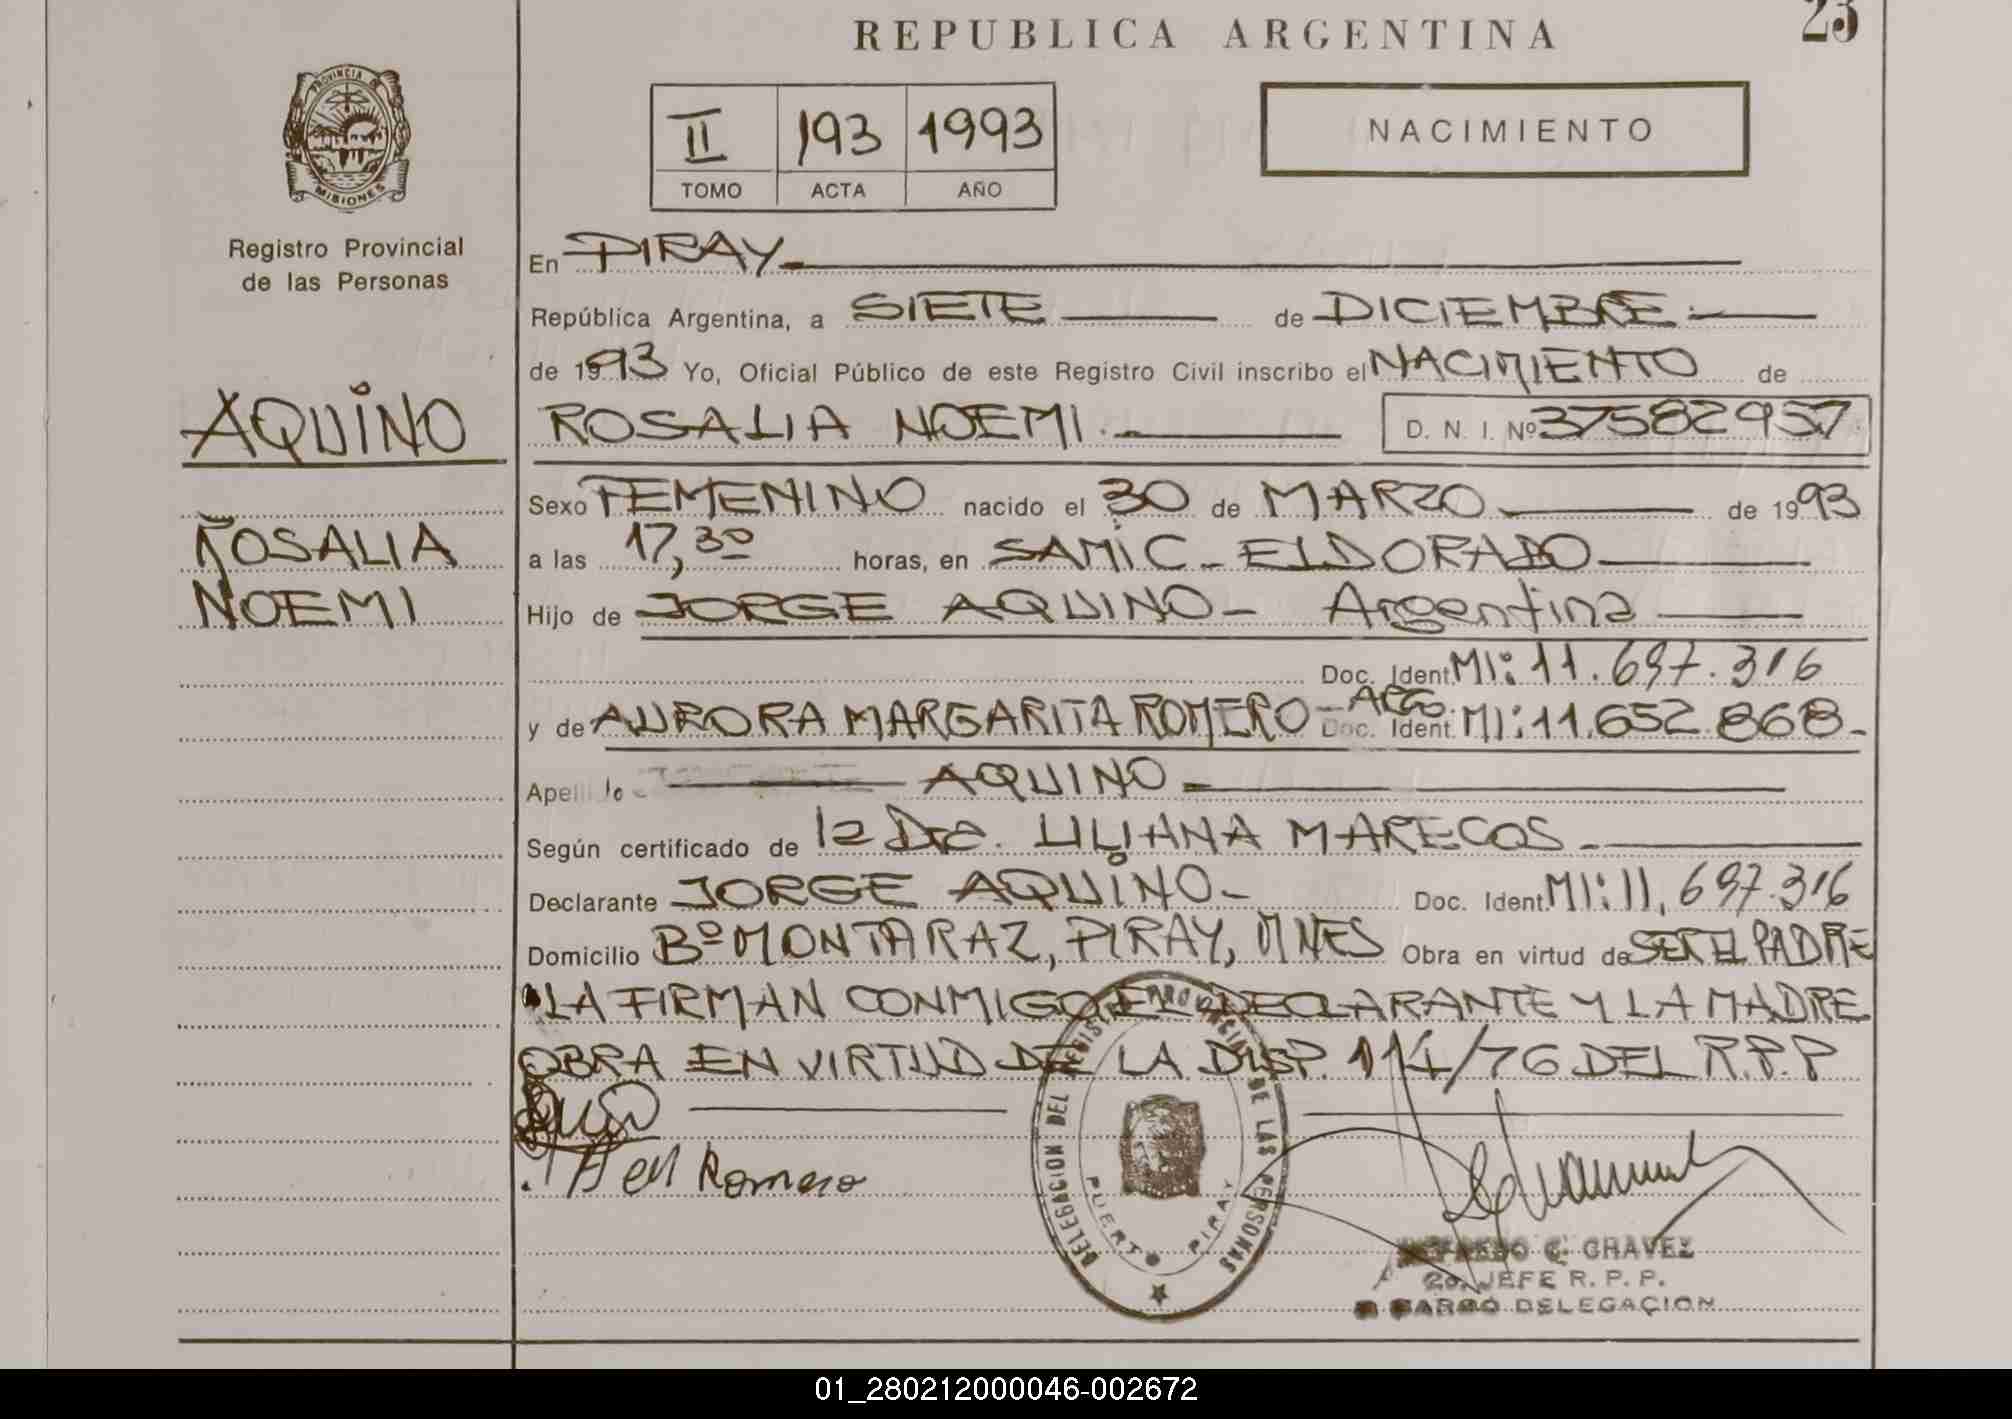 REPUBLICA ARGENTINA
23
PROVINCIA DE MISIONES
Registro Provincial
de las Personas
II 193 1993
TOMO ACTA AÑO
NACIMIENTO
En PIRAY
República Argentina, a SIETE de DICIEMBRE
de 1993 Yo, Oficial Público de este Registro Civil inscribo el NACIMIENTO de
AQUINO
ROSALIA NOEMI D. N. I. Nº 37582957
ROSALIA
NOEMI
Sexo FEMENINO nacido el 30 de MARZO de 1993
a las 17,30 horas, en SAMIC - ELDORADO
Hijo de JORGE AQUINO - Argentina
Doc. Ident. MI: 11.697.316
y de AURORA MARGARITA ROMERO - ARG. Doc. Ident. MI: 11.652.868 -
Apellido AQUINO
Según certificado de la Dra. LILIANA MARECOS
Declarante JORGE AQUINO - Doc. Ident. MI: 11.697.316
Domicilio Bº MONTARAZ, PIRAY, MNES Obra en virtud de SER EL PADRE
LA FIRMAN CONMIGO EL DECLARANTE Y LA MADRE
OBRA EN VIRTUD DE LA DISP. 114/76 DEL R.P.P
Romero
DELEGACION DEL REGISTRO PROVINCIAL DE LAS PERSONAS
PUERTO PIRAY
C. CHAVEZ
2o. JEFE R. P. P.
A CARGO DELEGACION
01_280212000046-002672